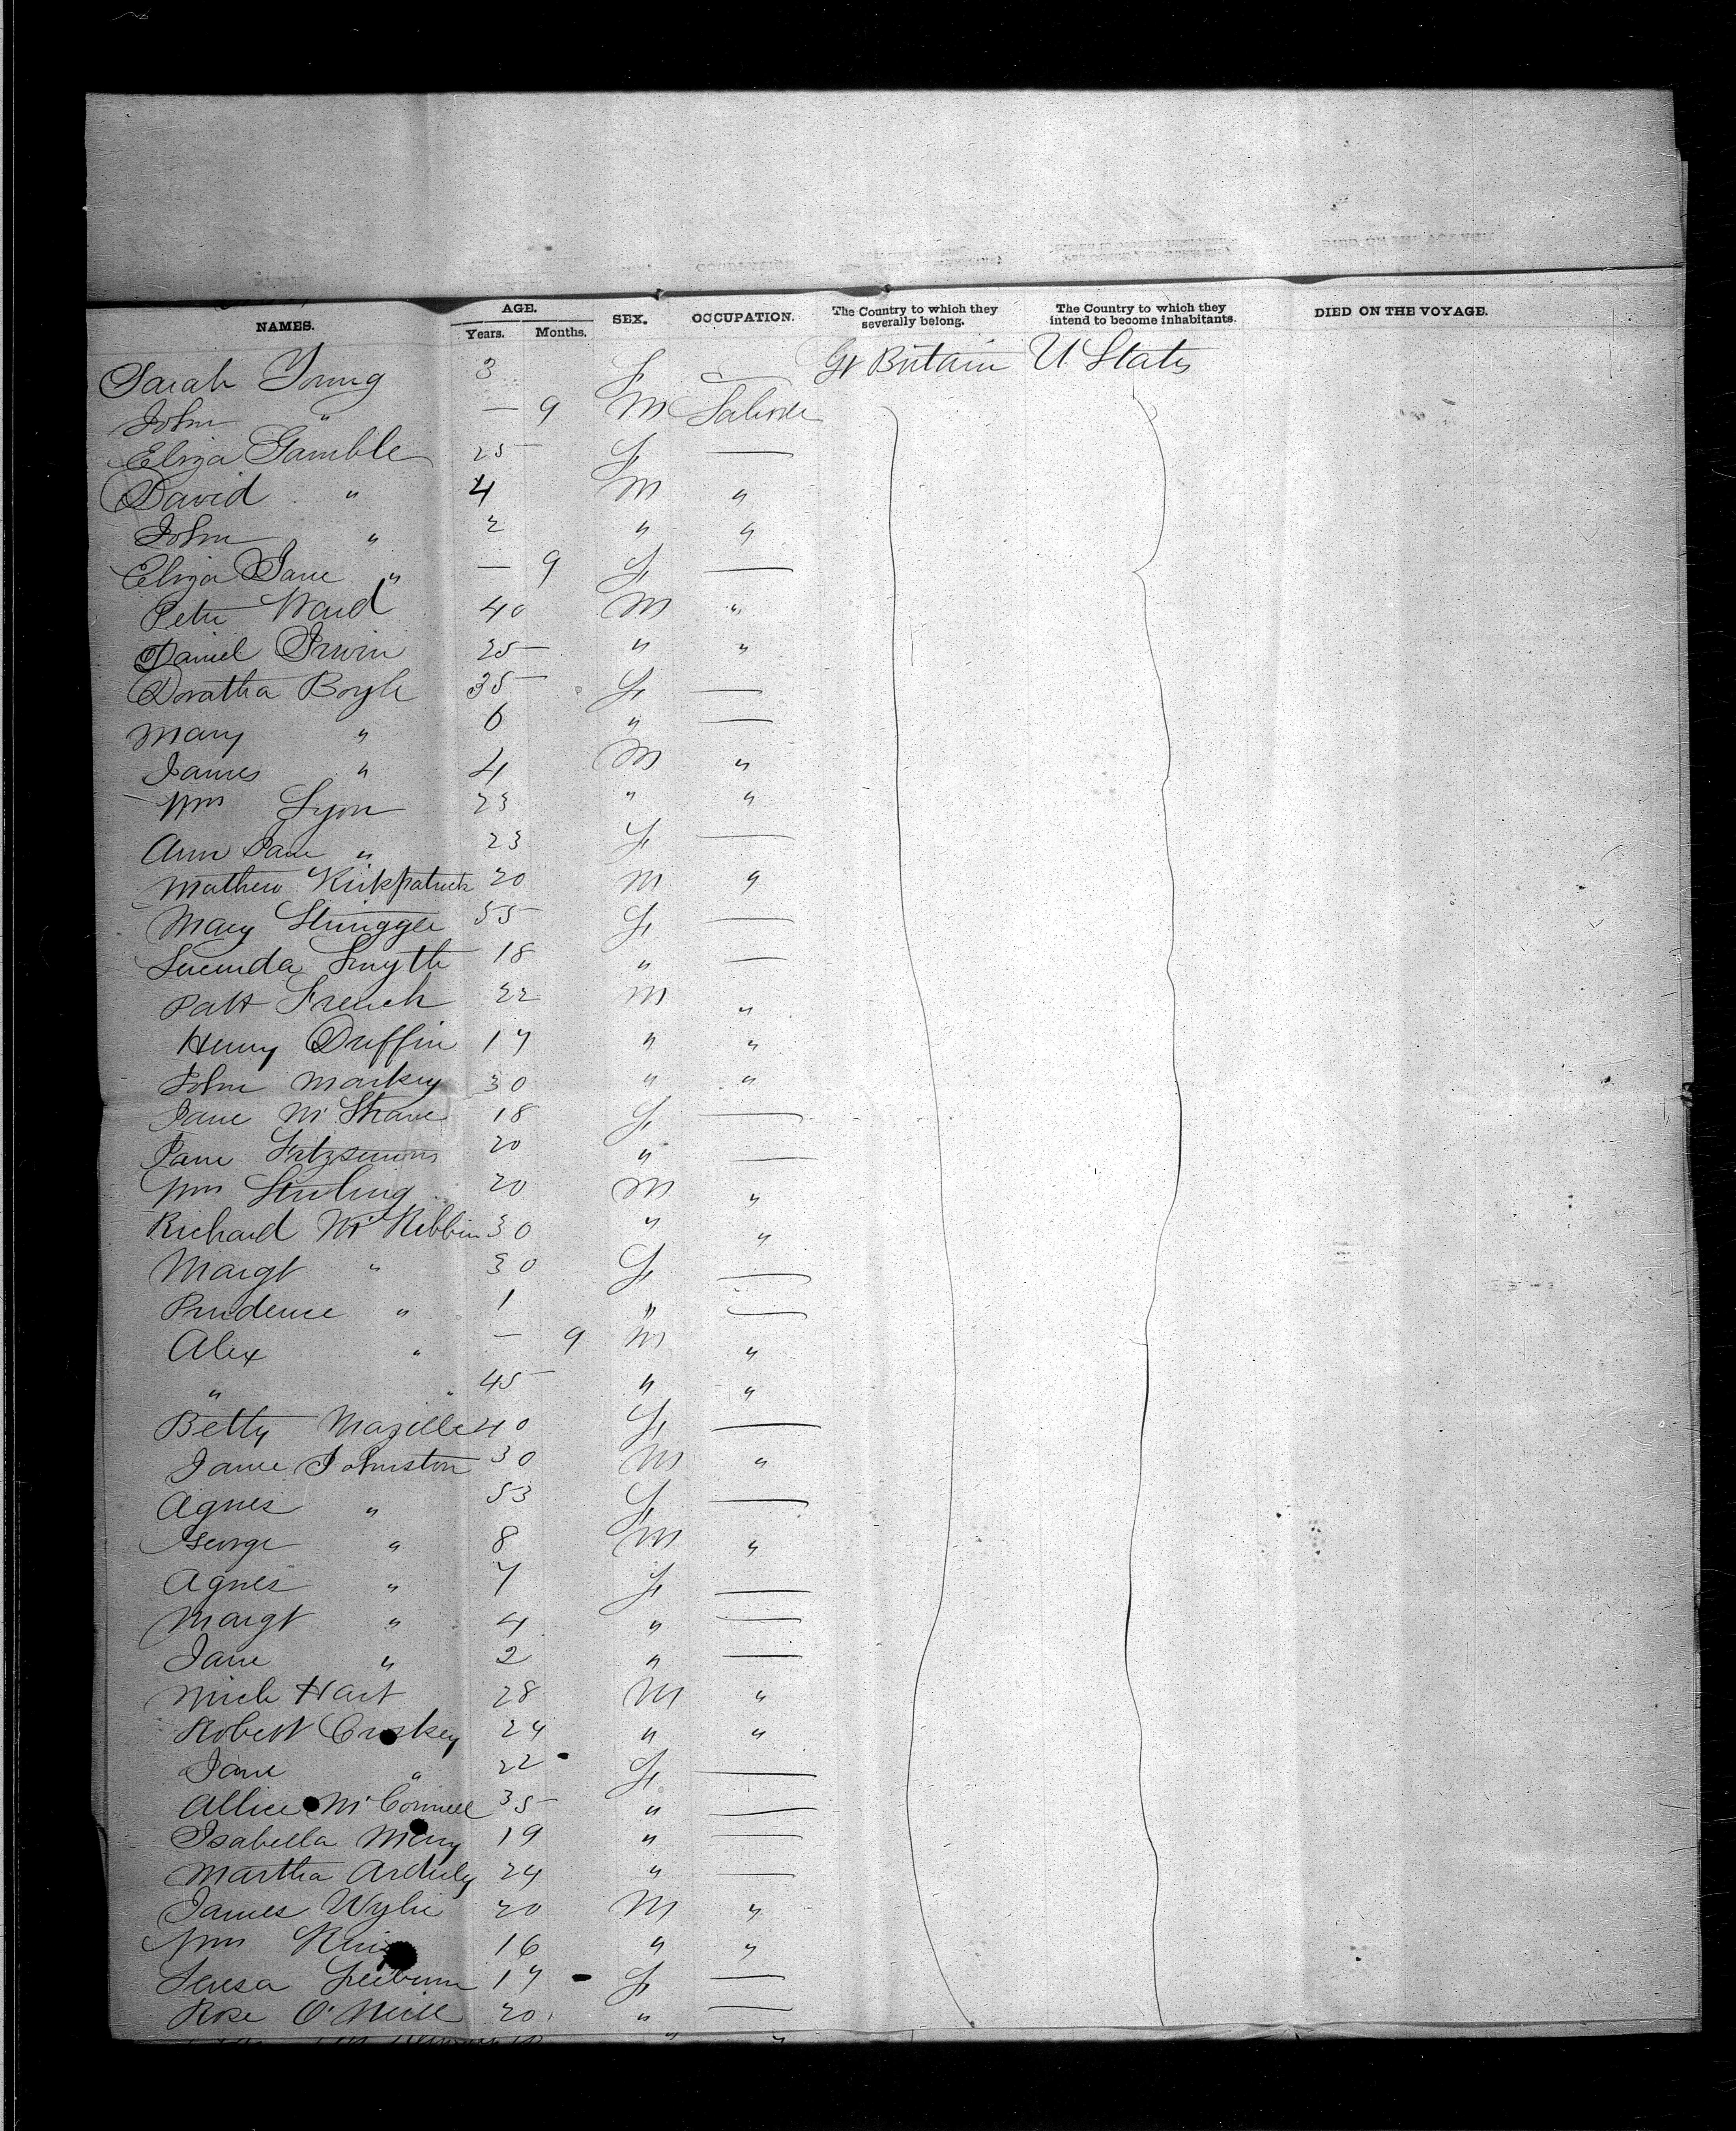 NAMES. AGE. Years. Months. SEX. OCCUPATION. The Country to which they severally belong. The Country to which they intend to become inhabitants. DIED ON THE VOYAGE.
Sarah Young 3 F — Gt Britain U. States
John " — 9 M Laborer
Eliza Gamble 25 F —
David " 4 M "
John " 2 " "
Eliza Jane " — 9 F —
Peter Ward 40 M "
Daniel Irwin 25 " "
Doratha Boyle 35 F —
Mary " 6 " —
James " 4 M "
Wm Lyon 23 " "
Ann Jane " 23 F —
Mathew Kirkpatrick 20 M "
Mary 55 F —
Lucinda Smyth 18 " —
Patt French 22 M "
Henry Duffin 17 " "
John Markey 30 " "
Jane McShane 18 F —
Jane Fitzsimons 20 " —
Wm Stirling 20 M "
Richard McKibbin 30 " "
Margt " 30 F —
Prudence " 1 " —
Alex " — 9 M "
" " 45 " "
Betty 40 F —
Jame Johnston 30 M "
Agnes " 53 F —
George " 8 M "
Agnes " 7 F —
Margt " 4 " —
Jane " 2 " —
Mich Hart 28 M "
Robert Croskey 24 " "
Jane " 22 F —
Allice McConnell 35 " —
Isabella 19 " —
Martha 24 " —
James Wylie 20 M "
Wm 16 " "
Teresa 17 F —
Rose O'Neill 20 " —